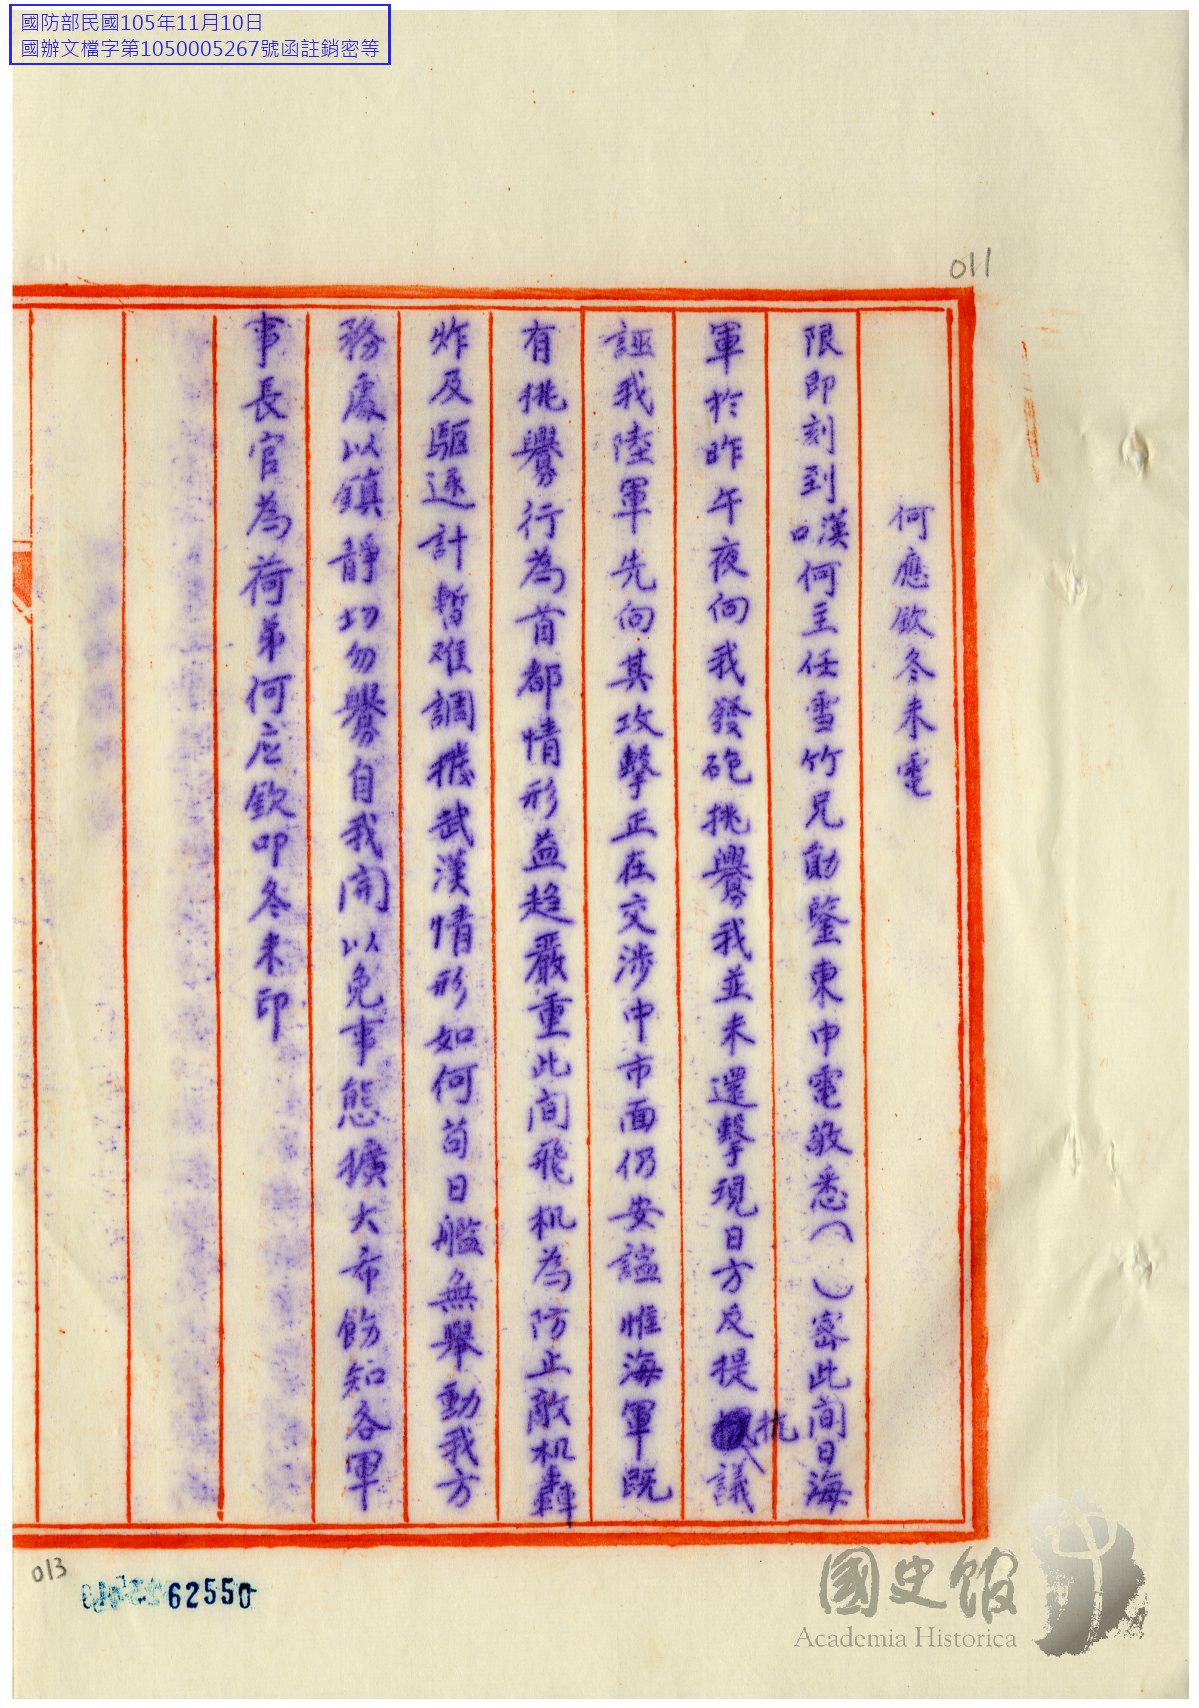 國防部民國105年11月10日
國辦文檔字第1050005267號函註銷密等
011
何應欽冬未電
限即刻到漢口何主任雪竹兄勛鑒東申電敬悉（　）密此間日海
軍於昨午夜向我發砲挑釁我並未還擊現日方反提抗議
誣我陸軍先向其攻擊正在交涉中市面仍安謐惟海軍既
有挑釁行為首都情形益趋嚴重此间飛机為防止敵机轟
炸及驅逐計暫难調撥武漢情形如何苟日艦無舉動我方
務處以鎮靜切勿釁自我開以免事態擴大希飭知各軍
事長官為荷弟何应欽叩冬未印
013
62550
國史館
Academia Historica